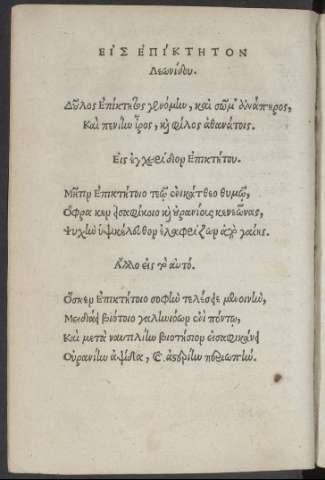 ΕΙΣ ΕΠΙΚΤΗΤΟΝ
Λεωνίδου.
Δοῦλος Ἐπίκτητος γενόμην, καὶ σῶμ' ἀνάπηρος,
Καὶ πενίην ἶρος, καὶ φίλος ἀθανάτοις.
Εἰς ἐγχειρίδιον Ἐπικτήτου.
Μῆτιν Ἐπικτήτοιο τεῷ ἐνικάτθεο θυμῷ,
Ὄφρα κεν εἰσαφίκηαι καὶ οὐρανίους κενεῶνας,
Ψυχὴν ὑψικέλευθον ἐλαφρίζων ἀπὸ γαίης.
Ἄλλο εἰς τὸ αὐτό.
Ὅς κεν Ἐπικτήτοιο σοφὴν τελέσειε μενοινήν,
Μειδιάει βιότοιο γαληνιόων ἐνὶ πόντῳ,
Καὶ μετὰ ναυτιλίην βιοτήσιον εἰσαφικάνει
Οὐρανίην ἀψῖδα, καὶ ἀστρίην περιωπήν.